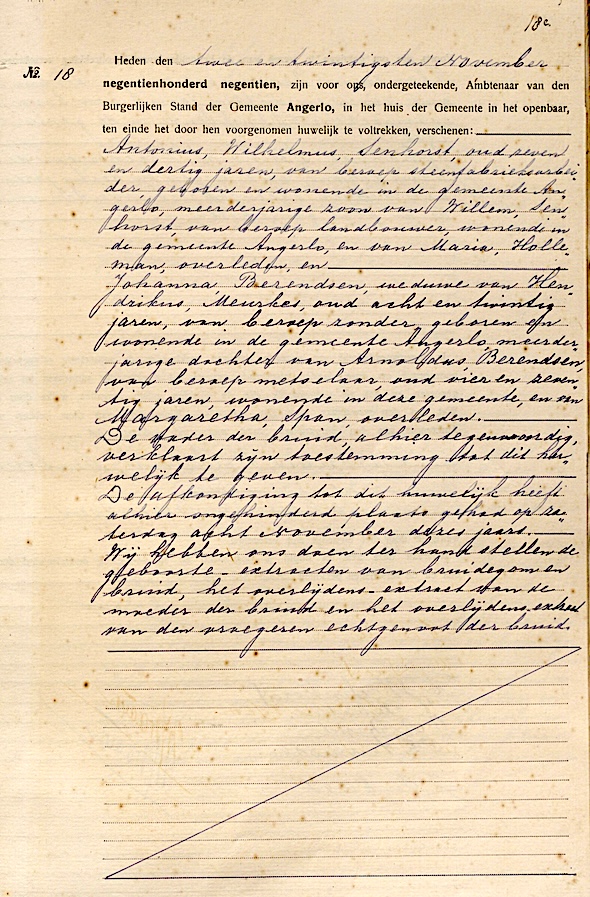 18c.
Heden den twee en twintigsten November
No. 18
negentienhonderd negentien, zijn voor ons, ondergeteekende, Ambtenaar van den
Burgerlijken Stand der Gemeente Angerlo, in het huis der Gemeente in het openbaar,
ten einde het door hen voorgenomen huwelijk te voltrekken, verschenen:
Antonius, Wilhelmus, Senhorst, oud zeven
en dertig jaren, van beroep steenfabrieksarbei„
der, geboren en wonende in de gemeente An„
gerlo, meerderjarige zoon van Willem, Sen„
horst, van beroep landbouwer, wonende in
de gemeente Angerlo, en van Maria, Holle„
man, overleden, en
Johanna Berendsen weduwe van Hen„
drikus, Meurkes, oud acht en twintig
jaren, van beroep zonder, geboren en
wonende in de gemeente Angerlo, meerder„
jarige dochter van Arnoldus, Berendsen,
van beroep metselaar, oud vier en zeven„
tig jaren, wonende in deze gemeente, en van
Margaretha, Span, overleden.
De vader der bruid, alhier tegenwoordig,
verklaart zijn toestemming tot dit hu„
welijk te geven.
De afkondiging tot dit huwelijk heeft
alhier ongehinderd plaats gehad op za„
terdag acht November dezes jaars.
Wij hebben ons doen ter hand stellen de
geboorte-extracten van bruidegom en
bruid, het overlijdens-extract van de
moeder der bruid en het overlijdens-extract
van den vroegeren echtgenoot der bruid.